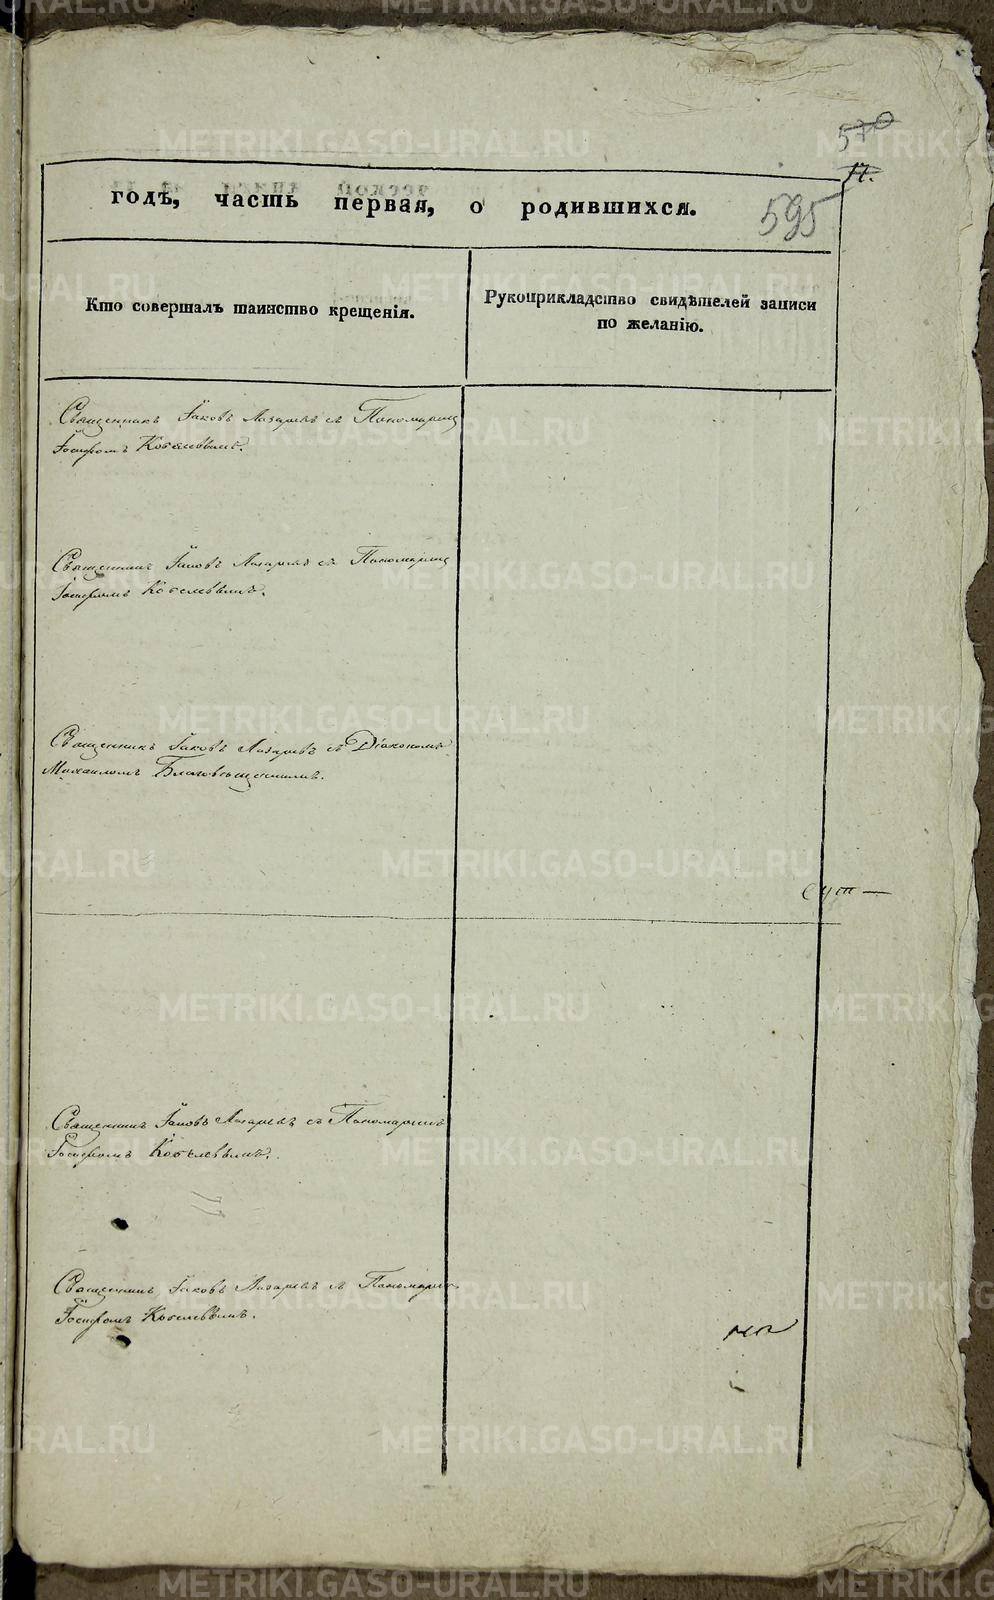 570
17.
годъ, часть первая, о родившихся.
595
Кто совершалъ таинство крещенія.
Рукоприкладство свидѣтелей записи
по желанію.
Священникъ Іаковъ Лазаревъ съ Пономаремъ
Іосифомъ Кобелевымъ.
Священникъ Іаковъ Лазаревъ съ Пономаремъ
Іосифомъ Кобелевымъ.
Священникъ Іаковъ Лазаревъ съ Діакономъ
Михаиломъ Благовѣщенскимъ.
Священникъ Іаковъ Лазаревъ съ Пономаремъ
Іосифомъ Кобелевымъ.
Священникъ Іаковъ Лазаревъ съ Пономаремъ
Іосифомъ Кобелевымъ.
METRIKI.GASO-URAL.RU